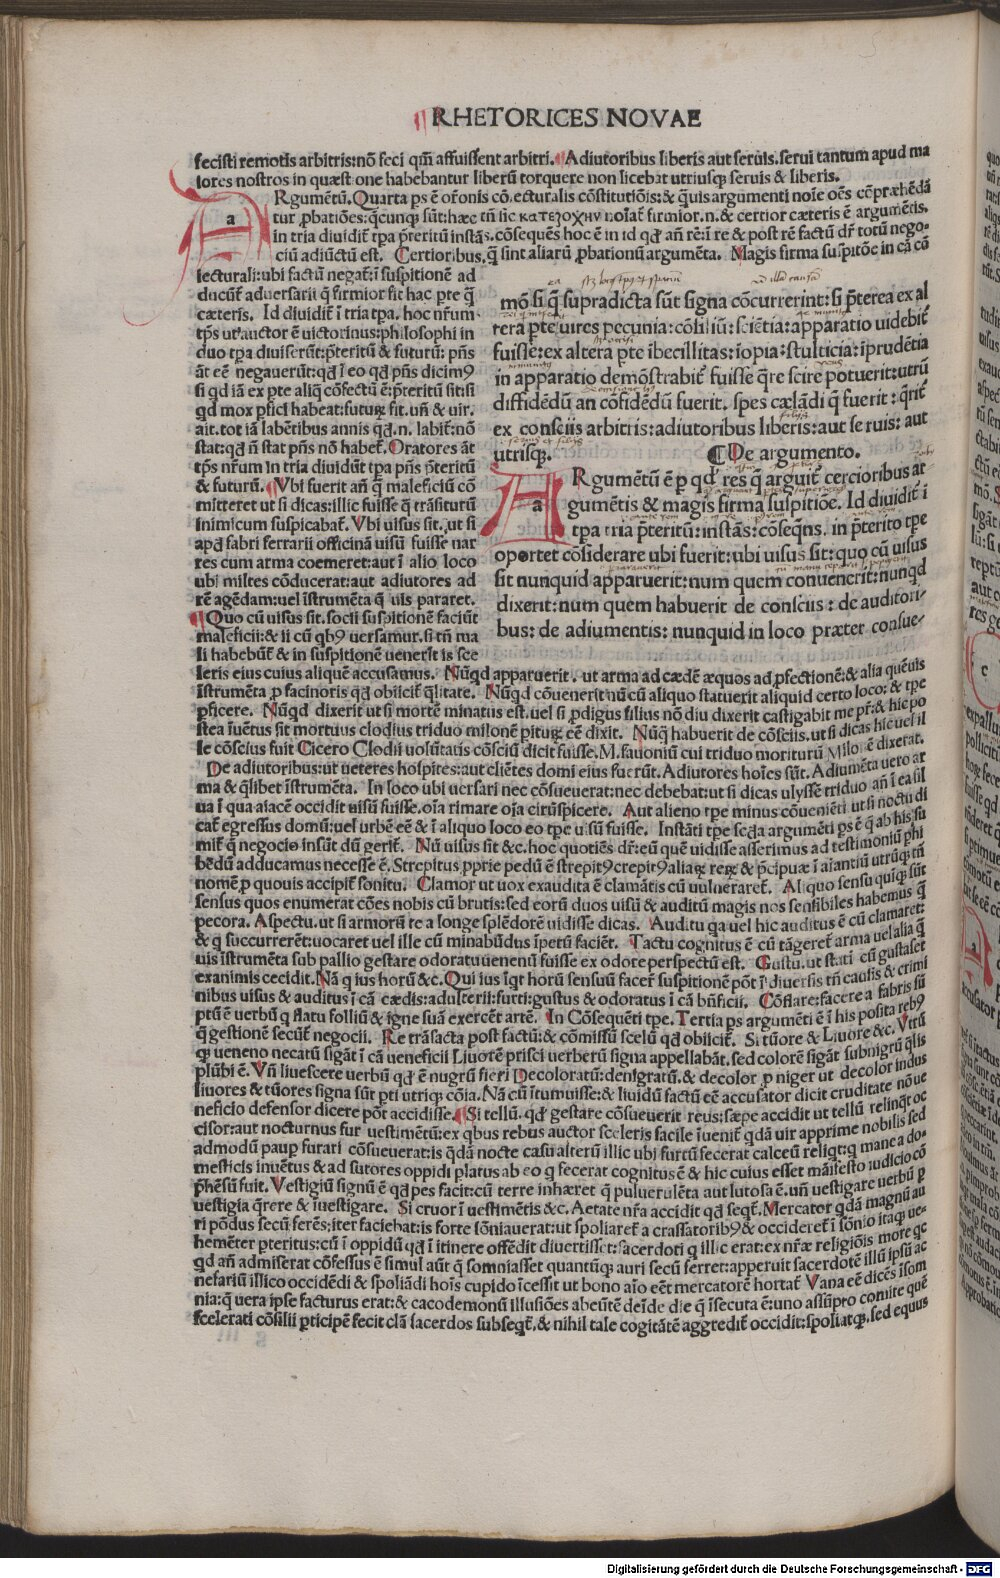 RHETORICES NOVAE
fecisti remotis arbitris:nō feci qm̄ affuissent arbitri. Adiutoribus liberis aut seruis. serui tantum apud ma
iores nostros in quæstione habebantur liberū torquere non licebat utriusqȝ seruis & liberis.
ARgumētū. Quarta ps ē
in tria diuidit̄ tp̄a p̄reritū instās. cōsequēs hoc ē in id qđ añ rē: ī re & post rē factū dr̄ totū nego
ciū adiūctū est. Certioribus. q̄ sint aliarū pbationū argumēta. Magis firma suspitōe in cā cō
iecturali: ubi factū negat̄: ī suspitionē ad
ducūt aduersarii q̄ firmior sit hac pte q̄
cæteris. Id diuidit̄ ī tria tp̄a. hoc nr̄um
tp̄s ut auctor ē uictorinus: philosophi in
duo tp̄a diuiserūt: p̄teritū & futurū: pn̄s
āt eē negauerūt: qđ ī eo qđ pn̄s dicimꝰ
si qđ iā ex pte aliq̄ cōfectū ē: p̄teritū sit: si
qđ mox pfici habeat: futurꝝ sit. uñ & uir.
ait. tot iā labētibus annis qđ. n. labit̄: nō
stat: qđ ñ stat pn̄s nō habet̄. Oratores āt
tp̄s nr̄um in tria diuidūt tp̄a pn̄s p̄teritū
& futurū. Vbi fuerit añ q̄ maleficiū cō
mitteret ut si dicas: illic fuisse q̄ trāsiturū
inimicum suspicabat̄. Vbi uisus sit. ut si
apđ fabri ferrarii officinā uisū fuisse nar
res cum arma coemeret: aut ī alio loco
ubi milites cōduceret: aut adiutores ad
rē agēdam: uel īstrumēta q̄ uis pararet.
Quo cū uisus sit. socii suspitionē faciūt
maleficii: & ii cū qbꝰ uersamur. si tñ ma
li habebūt̄ & in suspitionē uenerit is sce
mō si q̄ supradicta sūt signa cōcurrerint: si p̄terea ex al
tera pte uires pecunia: cōsiliū: sciētia: apparatio uidebit̄
fuisse: ex altera pte ībecillitas: īopia: stulticia: īprudētia
in apparatio demōstrabit̄ fuisse q̄re scire potuerit: utrū
diffidēdū an cōfidēdū fuerit. spes cælādi q̄ fuerit: q̄rit̄
ex consciis arbitris: adiutoribus liberis: aut seruis: aut
utrisqȝ. De argumento.
ARgumētū ē p qđ res q̄ arguit̄ cercioribus ar
gumētis & magis firma suspitiōe. Id diuidit̄ ī
tpa tria p̄teritū: instās: cōseqñs. in p̄terito tpe
oportet cōsiderare ubi fuerit: ubi uisus sit: quo cū uisus
sit nunquid apparuerit: num quem conuenerit: nunqđ
dixerit: num quem habuerit de consciis: de auditori-
bus: de adiumentis: nunquid in loco præter consue-
leris eius cuius aliquē accusamus. Nūqđ apparuerit. ut arma ad cædē æquos ad pfectionē: & alia quēuis
īstrumēta p facinoris qđ obiicit̄ q̄litate. Nūqđ cōuenerit nū cū aliquo statuerit aliquid certo loco: & tpe
pficere. Nūqđ dixerit ut si mortē minatus est. uel si pdigus filius nō diu dixerit castigabit me pr̄: & hic po
stea īuētus sit mortuus clodius triduo milonē pituꝝ eē dixit. Nūq̄ habuerit de cōsciis. ut si dicas hic uel il
le cōscius fuit Cicero Clodii uolūtatis cōsciū dicit fuisse. M. fauoniū cui triduo moriturū Milonē dixerat.
De adiutoribus: ut ueteres hospites: aut cliētes domi eius fuerūt. Adiutores hoīes sūt. Adiumēta uero ar
ma & q̄libet īstrumēta. In loco ubi uersari nec cōsueuerat: nec debebat: ut si dicas ulyssē triduo añ ī ea sil
ua ī qua aiacē occidit uisū fuisse. oīa rimare oīa circūspicere. Aut alieno tpe minus cōueniēti ut si noctu di
cat̄ egressus domū: uel urbē eē & ī aliquo loco eo tpe uisū fuisse. Instāti tpe scđa argumēti ps ē q̄ ab his su
mit̄ q̄ negocio insūt dū gerit̄. Nū uisus sit &c. hoc quotiēs dr̄: eū quē uidisse asserimus ad testimoniū phi
bēdū adducamus necesse ē. Strepitus pprie pedū ē
nomē p quouis accipit̄ sonitu. Clamor ut uox exaudita ē clamātis cū uulneraret̄. Aliquo sensu quiqȝ sūt
sensus quos enumerat cōes nobis cū brutis: sed eorū duos uisū & auditū magis nos sensibiles habemus q̄
pecora. Aspectu. ut si armorū te a longe splēdorē uidisse dicas. Auditu qa uel hic auditus ē cū clamaret:
& q̄ succurrerēt: uocaret uel ille cū minabūdus īpetū faciēt. Tactu cognitus ē cū tāgeret̄ arma uel alia q̄
uis īstrumēta sub pallio gestare odoratu uenenū fuisse ex odore perspectū est. Gustu. ut stati cū gustasset
exanimis cecidit. Nā q ius horū &c. Qui ius īqt horū sensuū facer̄ suspitionē pōt ī diuersis tñ causis & crimi
nibus uisus & auditus ī cā cædis: adulterii: furti: gustus & odoratus ī cā bñficii. Cōflare: facere a fabris sū
ptū ē uerbū q flatu folliū & igne suā exercēt artē. In Cōsequēti tpe. Tertia ps argumēti ē ī his posita rebꝰ
q̄ gestionē secūt̄ negocii. Re trāsacta post factū: & cōmissū scelū qđ obiicit̄. Si tūore & Liuore &c. Vtrū
qȝ ueneno necatū sigāt ī cā ueneficii Liuorē prisci uerberū signa appellabāt. sed colorē sigāt subnigrū q̄lis
plūbi ē. Vñ liuescere uerbū qđ ē nugrū fieri Decoloratū: denigratū. & decolor p niger ut decolor indus
liuores & tūores signa sūt pti utriqȝ cōia. Nā cū ītumuisse: & liuidū factū eē accusator dicit cruditate nō ue
neficio defensor dicere pōt accidisse. Si tellū. qđ gestare cōsueuerit reus: sæpe accidit ut tellū relinqt̄ oc
cisor: aut nocturnus fur uestimētū: ex qbus rebus auctor sceleris facile īuenit̄ qđā uir apprime nobilis sed
admodū paup furari cōsueuerat: is qđā nocte casu alterū illic ubi furtū fecerat calceū reliqt: q mane a do-
mesticis inuētus & ad sutores oppidi platus ab eo q fecerat cognitus ē & hic cuius esset māifesto iudicio cō
phēsū fuit. Vestigiū signū ē qđ pes facit: cū terre inhæret q puluerulēta aut lutosa ē. uñ uestigare uerbū p
uestigia q̄rere & īuestigare. Si cruor ī uestimētis &c. Aetate nr̄a accidit qđ seqt̄. Mercator qđā magnū au
ri pōdus secū ferēs: iter faciebat: is forte sōniauerat: ut spoliaret̄ a crassatoribꝰ & occideret̄ ī sōnio itaqȝ ue-
hemēter pteritus: cū ī oppidū qđ ī itinere offēdit diuertisset: sacerdoti q illic erat: ex nr̄æ religiōis more qc
qđ añ admiserat cōfessus ē simul aūt q̄ somniasset quantūqȝ auri secū ferret: apperuit sacerdotē illū ipsū ac
nefariū illico occidēdi & spoliādi hoīs cupido īcessit ut bono aīo eēt mercatorē hortat̄ Vana eē dicēs īsom
nia: q̄ uera ipse facturus erat: & cacodemonū illusiōes abeūtē deīde die q̄ īsecuta ē: uno assūpto comite quē
scelerati cōsilii pticipē fecit clā sacerdos subseqt̄. & nihil tale cogitātē aggredit̄ occidit: spoliatqȝ. sed equus
Digitalisierung gefördert durch die Deutsche Forschungsgemeinschaft - DFG